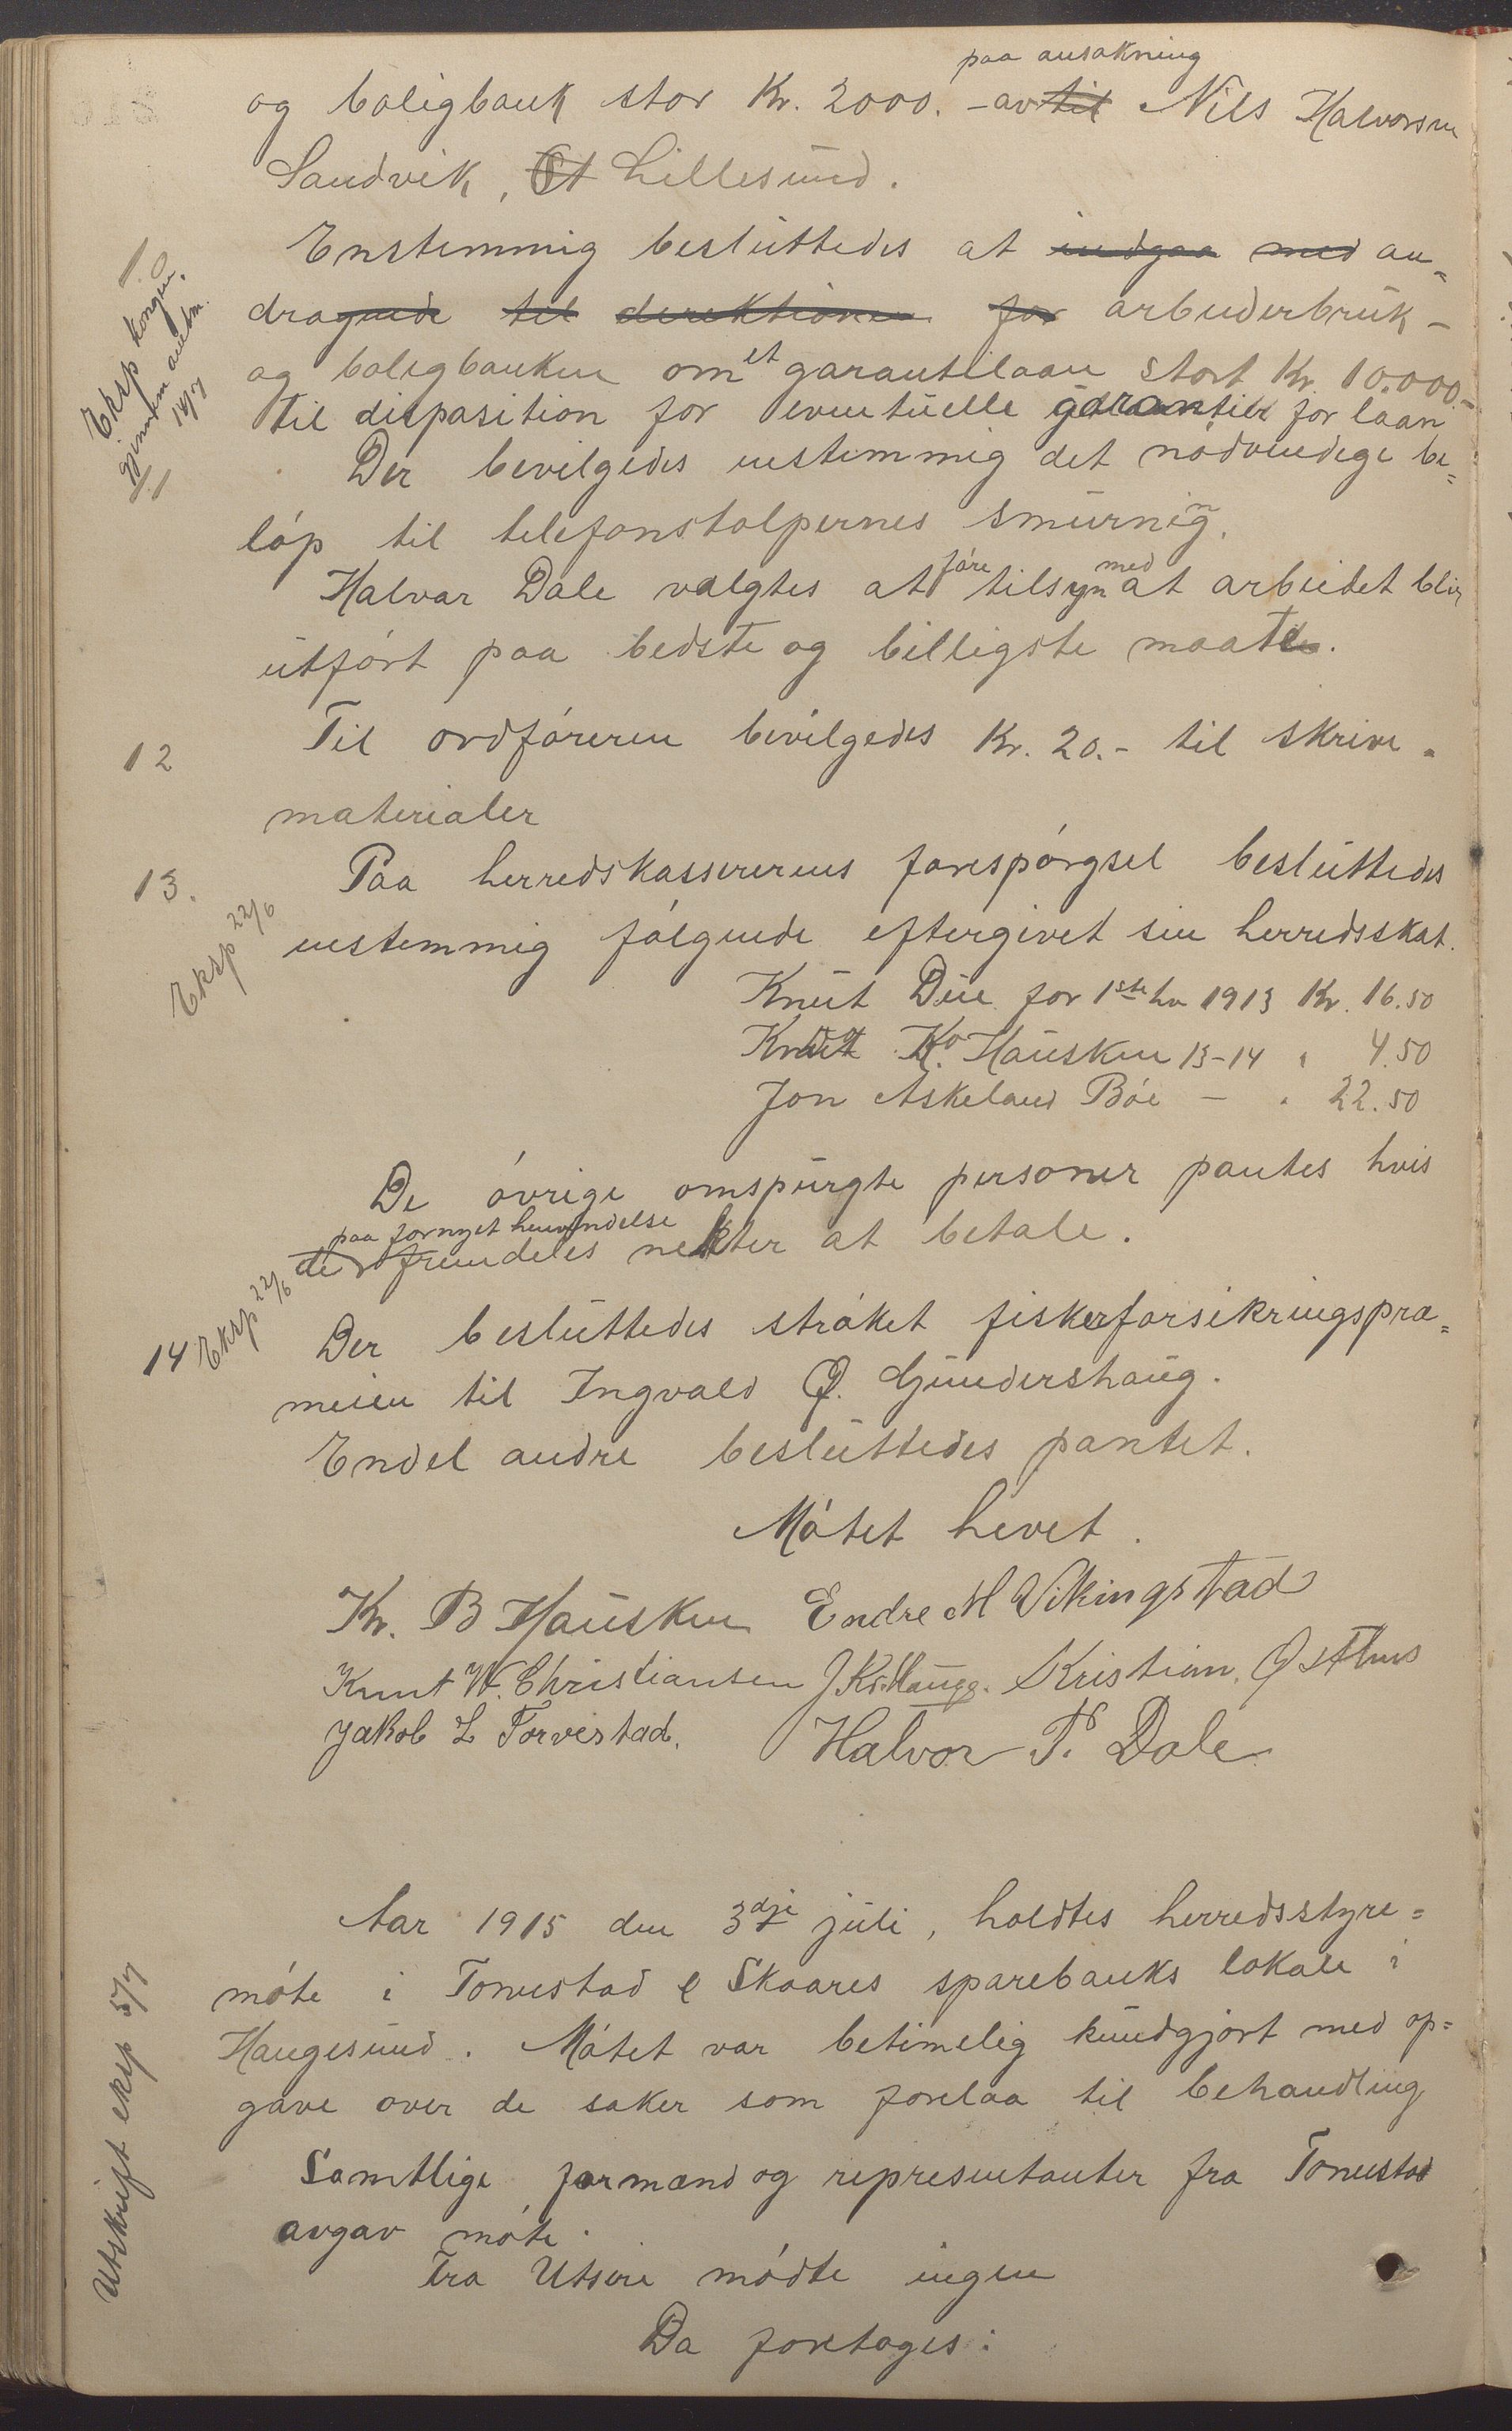 paa ansøkning
og boligbank stor Kr. 2000. - av til Nils Halvorsen
Sandvik, St Lillesund.
10
Enstemmig besluttedes at indgaa med an=
dragende til direktionen for arbeiderbruk-
Eksp kongen.
gjennem amtm.
14/7
og boligbanken om et garantilaan stort Kr. 10.000.-
til disposition for eventuelle garantier for laan
11
Der bevilgedes enstemmig det nødvendige be=
løp til telefonstolpernes smurning.
Halvar Dale valgtes at føre tilsyn med at arbeidet blir
utført paa bedste og billigste maate.
12
Til ordføreren bevilgedes Kr. 20.- til skrive=
materialer
13.
Paa herredskassererens forespørgsel besluttedes
Eksp 22/6
enstemmig følgende eftergivet sin herredsskat.
Knut Due for 1ste hv 1913 Kr. 16.50
K. Hausken 13-14 " 4.50
Jon Askeland Bøe - " 22.50
De øvrige omspurgte personer pantes hvis
paa fornyet henvendelse
de fremdeles nekter at betale.
14 Eksp 22/6
Der besluttedes strøket fiskerforsikringspræ=
mien til Ingvald O. Gundershaug.
Endel andre besluttedes pantet.
Møtet hevet.
Kr. B Hausken Endre M Vikingstad
Knut W. Christiansen J. Kr. Haugg. Kristian. Østhus
Jakob L Torvestad. Halvor T. Dale
Aar 1915 den 3dje juli, holdtes herredsstyre=
møte i Torvestad & Skaares sparebanks lokale i
Haugesund. Møtet var betimelig kundgjort med op=
gave over de saker som forelaa til behandling
Utskrift eksp 5/7
Samtlige formænd og representanter fra Torvestad
avgav møte.
Fra Utsire mødte ingen
Da foretoges: